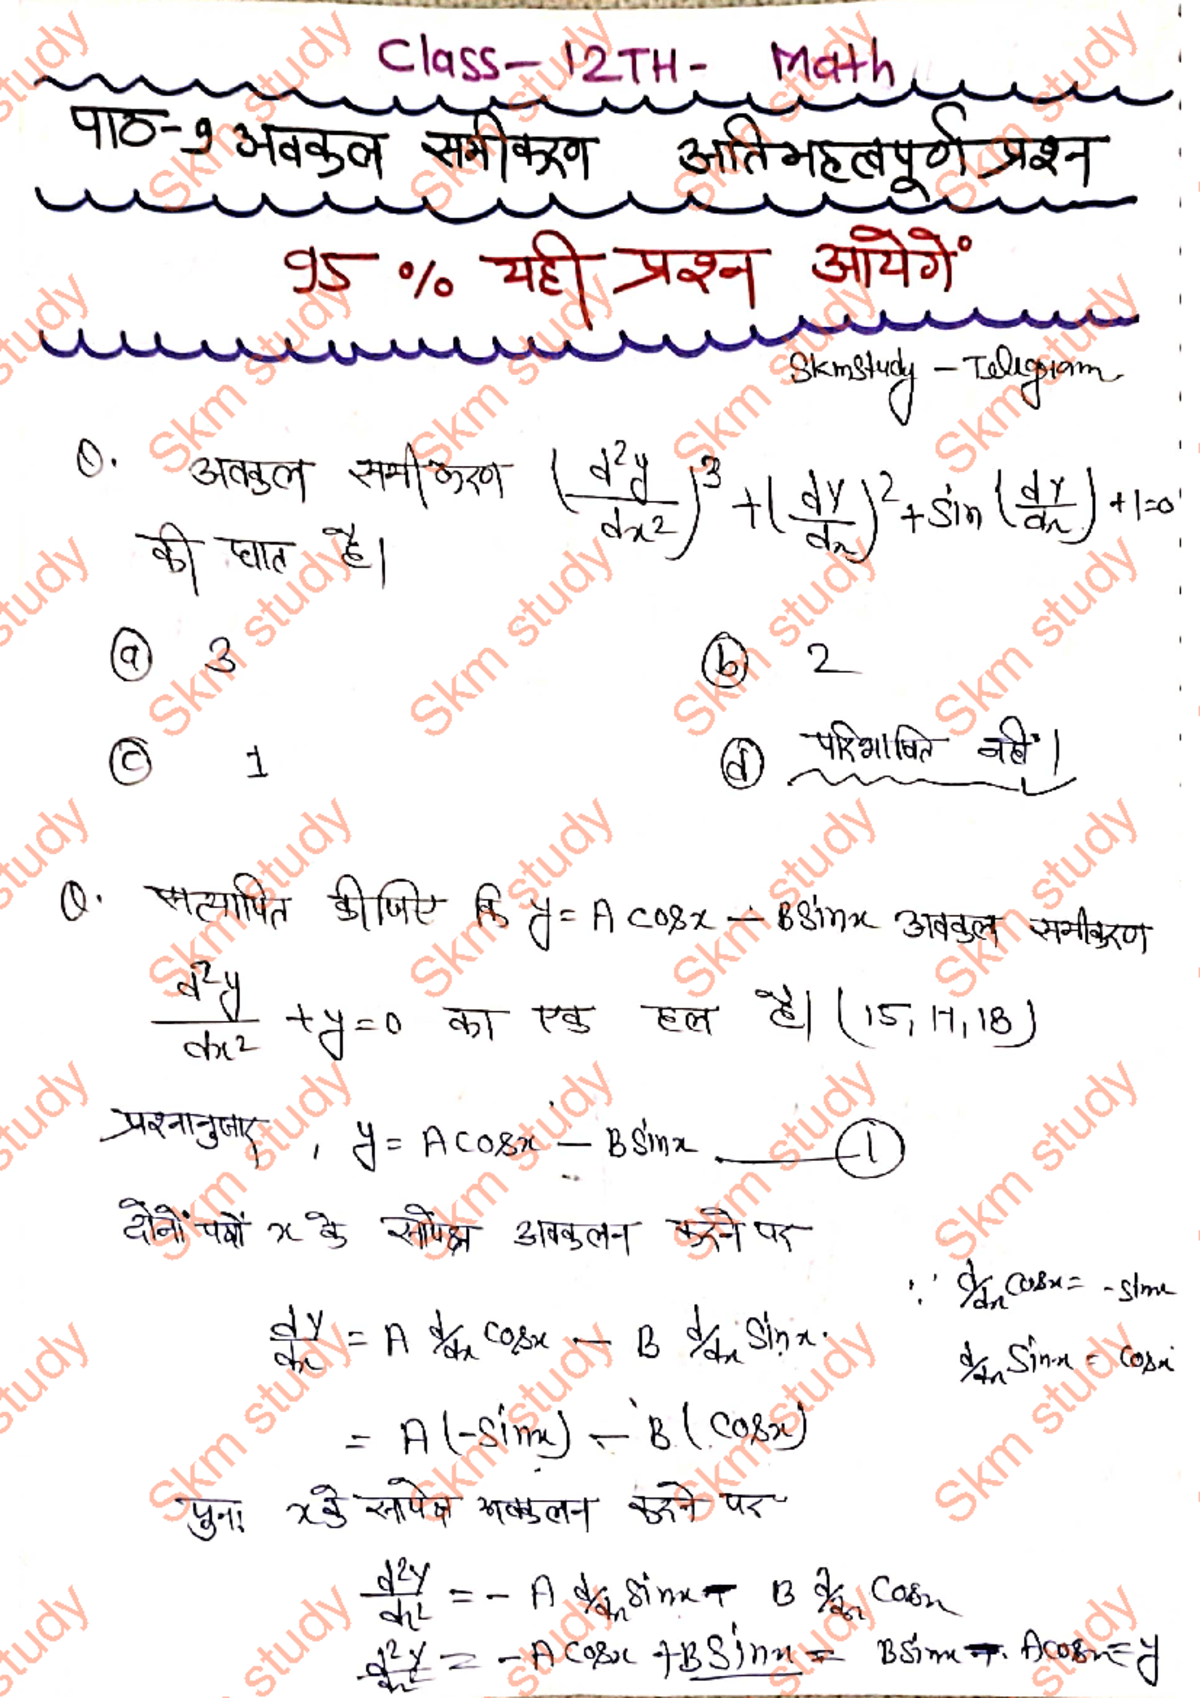 Class - 12TH - Math
पाठ-9 अवकुल समीकरण अतिमहत्वपूर्ण प्रश्न
95 % यही प्रश्न आयेगें
Skmstudy - Telegram
Q. अवकुल समीकरण (d²y/dx²)³ + (dy/dx)² + sin(dy/dx) + 1 = 0
की घात है।
(a) 3 (b) 2
(c) 1 (d) परिभाषित नहीं।
Q. सत्यापित कीजिए कि y = A cosx - B sinx अवकुल समीकरण
d²y/dx² + y = 0 का एक हल है। (15, 17, 18)
प्रश्नानुसार, y = A cosx - B sinx ——— (1)
दोनों पक्षों x के सापेक्ष अवकलन करने पर
∵ d/dx cosx = -sinx
dy/dx = A d/dx cosx - B d/dx sinx.
d/dx sinx = cosx
= A(-sinx) - B(cosx)
पुनः x के सापेक्ष अवकलन करने पर
d²y/dx² = - A d/dx sinx - B d/dx cosx
d²y/dx² = - A cosx + B sinx = B sinx - A cosx = y
Skm study